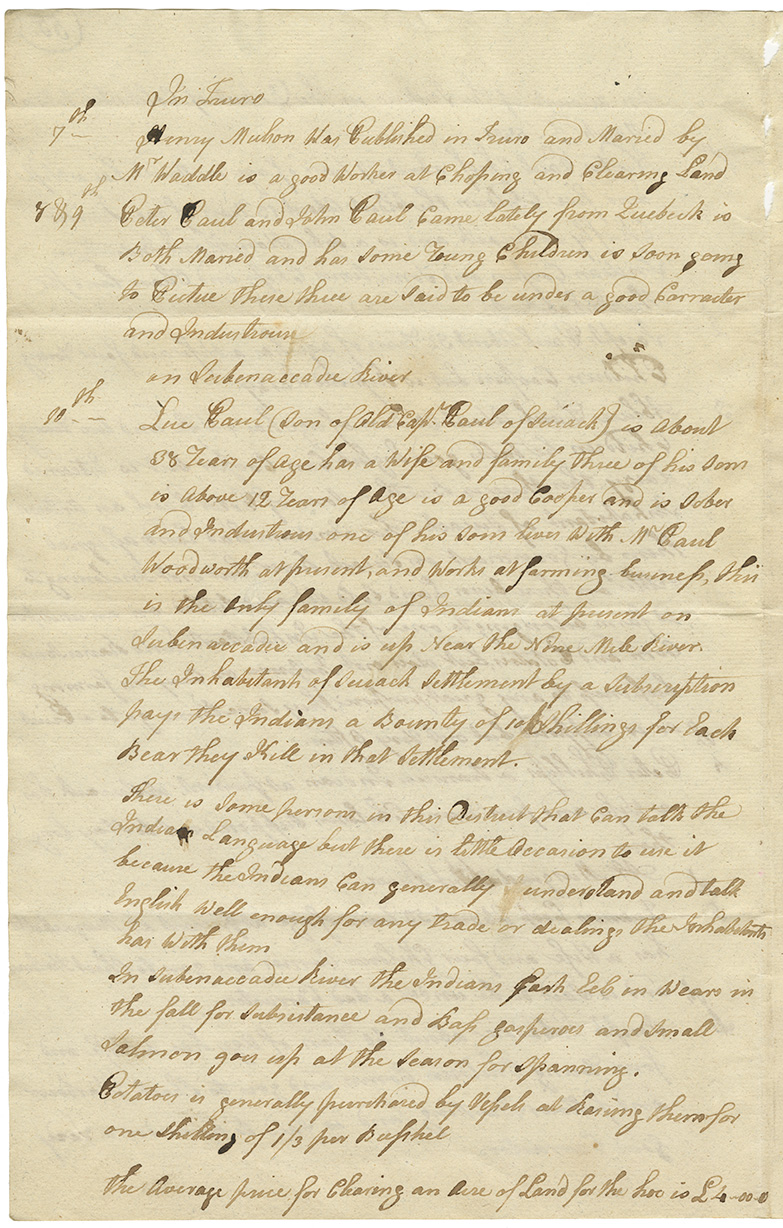 In Truro
7th Henry Mulson Was Published in Truro and Maried by
Mr Waddle is a good Worker at Choping and Clearing Land
8 & 9th Peter Paul and John Paul Came lately from Quebeck is
Both Maried and has some Young Children is soon going
to Pictue these three are said to be under a good Carracter
and Industrous
on Subenaccadie River
10th Lue Paul (Son of Old Capt. Paul of Sewack) is About
38 Years of Age has a Wife and family three of his Sons
is Above 12 Years of Age is a good Cooper and is Sober
and Industrous one of his Sons lives With Mr Paul
Woodworth at present, and Works at farming business, this
is the Only family of Indians at present on
Subenaccadie and is up Near the Nine Mile River.
The Inhabitants of Sewack Settlement by a Subscription
pays the Indians a Bounty of 10 Shillings for Each
Bear they Kill in that Settlement.
There is Some persons in this District that Can talk the
Indian Language but there is little Occasion to use it
because the Indians Can generally understand and talk
English Well enough for any trade or dealings the Inhabitents
has With them
In Subenaccadie River the Indians Cach Eels in Wears in
the fall for Subsistance and Bass gasperous and Small
Salmon goes up at the Season for Spanning.
Potatoes is generally purchased by Vessels at Rasing them for
one Shilling of 1/3 per Bushel
the Average price for Clearing an Acre of Land for the hoe is £4-00-0